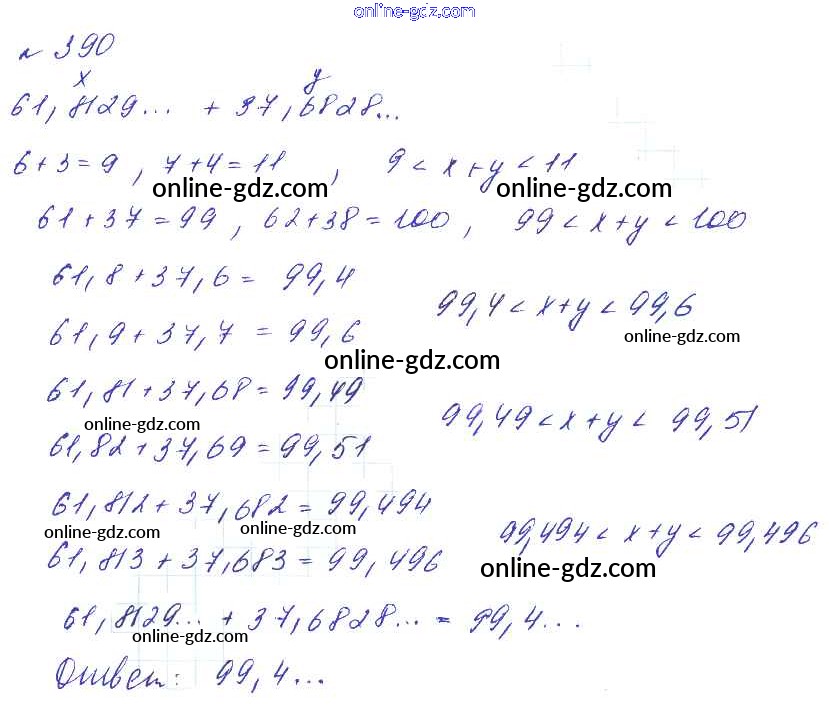 online-gdz.com
№ 390
x y
61,8129... + 37,6828...
6+3=9, 7+4=11, 9 < x+y < 11
online-gdz.com online-gdz.com
61+37=99, 62+38=100, 99 < x+y < 100
61,8+37,6= 99,4
99,4 < x+y < 99,6
61,9+37,7 = 99,6
online-gdz.com
online-gdz.com
61,81+37,68=99,49
99,49 < x+y < 99,51
online-gdz.com
61,82+37,69=99,51
61,812+37,682=99,494
online-gdz.com online-gdz.com
99,494 < x+y < 99,496
61,813+37,683=99,496
online-gdz.com
61,8129... + 37,6828... = 99,4...
online-gdz.com
Ответ: 99,4...